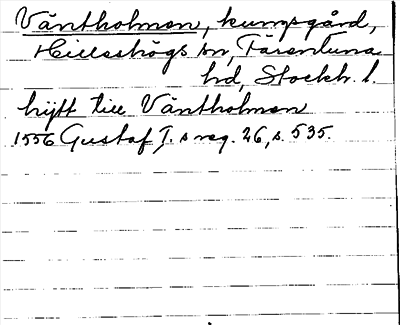 Väntholmen, kungsgård,
Hilleshögs sn, Färentuna
hd, Stockh. l.
hijtt till Väntholmen
1556 Gustaf I. s reg. 26, s. 535.